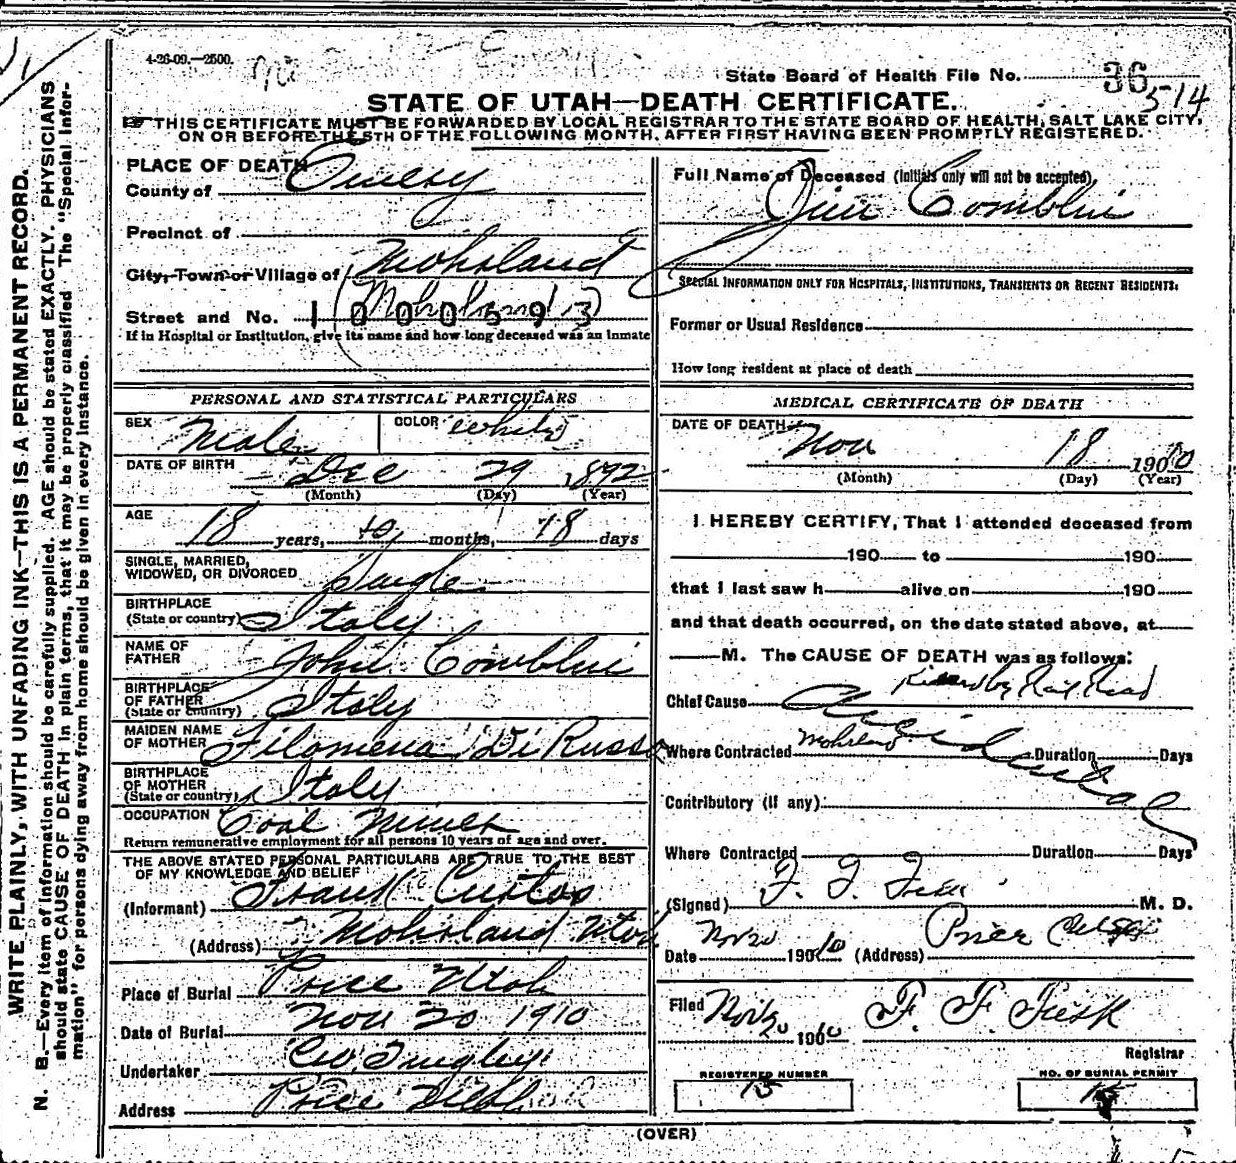 4-26-09.—2500.
State Board of Health File No. 36 514
STATE OF UTAH—DEATH CERTIFICATE.
THIS CERTIFICATE MUST BE FORWARDED BY LOCAL REGISTRAR TO THE STATE BOARD OF HEALTH, SALT LAKE CITY,
ON OR BEFORE THE 5TH OF THE FOLLOWING MONTH, AFTER FIRST HAVING BEEN PROMPTLY REGISTERED.
WRITE PLAINLY, WITH UNFADING INK—THIS IS A PERMANENT RECORD.
N. B.—Every item of information should be carefully supplied. AGE should be stated EXACTLY. PHYSICIANS
should state CAUSE OF DEATH in plain terms, that it may be properly classified. The "Special Infor-
mation" for persons dying away from home should be given in every instance.
PLACE OF DEATH
County of Emery
Precinct of
City, Town or Village of Mohrland
(Mohrland)
Street and No. 1000593
If in Hospital or Institution, give its name and how long deceased was an Inmate
PERSONAL AND STATISTICAL PARTICULARS
SEX Male COLOR White
DATE OF BIRTH Dec 29 1892
(Month) (Day) (Year)
AGE 18 years, 10 months, 18 days
SINGLE, MARRIED,
WIDOWED, OR DIVORCED Single
BIRTHPLACE
(State or country) Italy
NAME OF
FATHER John
BIRTHPLACE
OF FATHER
(State or country) Italy
MAIDEN NAME
OF MOTHER Filomena Di Russo
BIRTHPLACE
OF MOTHER
(State or country) Italy
OCCUPATION Coal Miner
Return remunerative employment for all persons 10 years of age and over.
THE ABOVE STATED PERSONAL PARTICULARS ARE TRUE TO THE BEST
OF MY KNOWLEDGE AND BELIEF
(Informant) Frank
(Address) Mohrland Utah
Place of Burial Price Utah
Date of Burial Nov 20 1910
Undertaker
Address Price Utah
Full Name of Deceased (Initials only will not be accepted)
Jim
SPECIAL INFORMATION ONLY FOR HOSPITALS, INSTITUTIONS, TRANSIENTS OR RECENT RESIDENTS:
Former or Usual Residence
How long resident at place of death
MEDICAL CERTIFICATE OF DEATH
DATE OF DEATH Nov 18 1910
(Month) (Day) (Year)
I HEREBY CERTIFY, That I attended deceased from
190 to 190
that I last saw h alive on 190
and that death occurred, on the date stated above, at
M. The CAUSE OF DEATH was as follows:
Killed by Rail Road
Chief Cause Accidental
Where Contracted Mohrland Duration Days
Contributory (if any)
Where Contracted Duration Days
(Signed) F. F. Fisk M. D.
Date Nov 20 1910 (Address) Price Utah
Filed Nov 20 1910 F. F. Fisk
Registrar
REGISTERED NUMBER
15
NO. OF BURIAL PERMIT
15
(OVER)